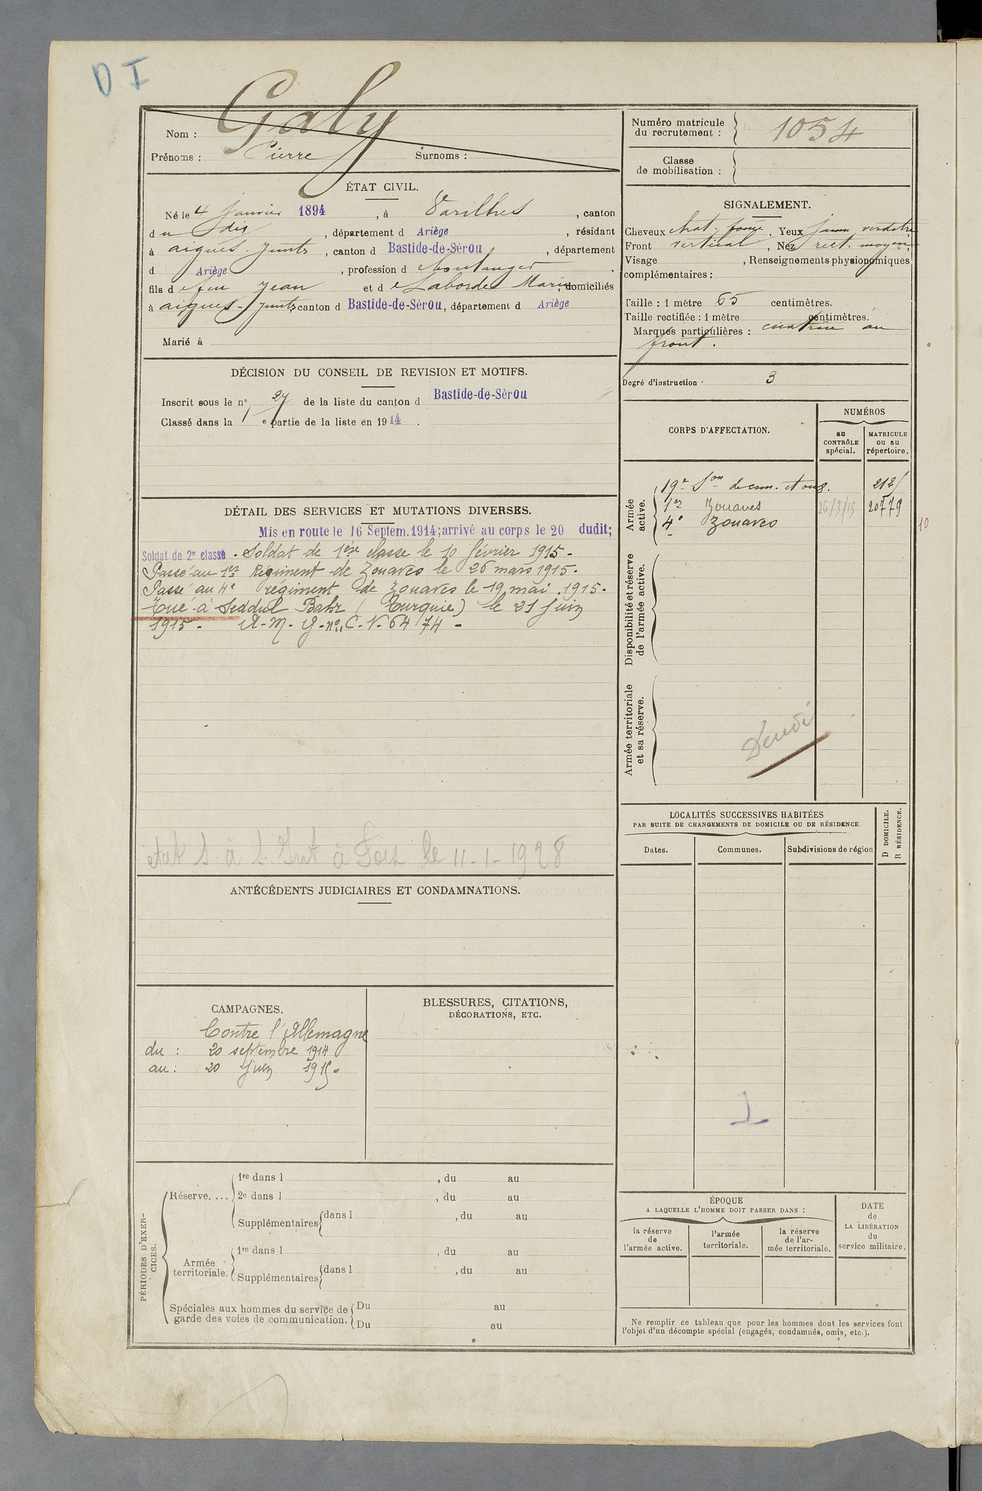 D I
Nom : Galy
Prénoms : Pierre Surnoms :
Numéro matricule
du recrutement : 1054
Classe
de mobilisation :
ÉTAT CIVIL.
Né le 4 janvier 1894, à Varilhes, canton
d u dit, département d Ariège, résidant
à aigues-Juntes, canton d Bastide-de-Sérou, département
d Ariège, profession d boulanger
fils de feu Jean et de Laborde Marie, domiciliés
à aigues-Juntes canton d Bastide-de-Sérou, département d Ariège
Marié à
SIGNALEMENT.
Cheveux chat. foncé, Yeux jaune verdâtre
Front vertical, Nez rect. moyen,
Visage , Renseignements physionomiques
complémentaires :
Taille : 1 mètre 65 centimètres.
Taille rectifiée : 1 mètre centimètres.
Marques particulières : cicatrice au
front.
Degré d'instruction . 3
DÉCISION DU CONSEIL DE REVISION ET MOTIFS.
Inscrit sous le n° 27 de la liste du canton d Bastide-de-Sérou
Classé dans la 1 e partie de la liste en 1914.
CORPS D'AFFECTATION.
NUMÉROS
au
CONTRÔLE
spécial.
MATRICULE
ou au
répertoire.
Armée
active.
19e Son de com. et ouv.
1er Zouaves 26/3/15 20779
4e Zouaves
10
DÉTAIL DES SERVICES ET MUTATIONS DIVERSES.
Mis en route le 16 Septem. 1914; arrivé au corps le 20 dudit;
Soldat de 2e classe - Soldat de 1ère classe le 10 février 1915 -
Passé au 1er Régiment de Zouaves le 26 mars 1915 -
Passé au 4e régiment de Zouaves le 19 mai 1915 -
Tué à Seddul Bahr (Turquie) le 21 juin
1915 - A. M. G. n° C. N. 64174 -
Disponibilité et réserve
de l'armée active.
Armée territoriale
et sa réserve.
le 11-1-1928
LOCALITÉS SUCCESSIVES HABITÉES
PAR SUITE DE CHANGEMENTS DE DOMICILE OU DE RÉSIDENCE.
D DOMICILE.
R RÉSIDENCE.
Dates. Communes. Subdivisions de région
ANTÉCÉDENTS JUDICIAIRES ET CONDAMNATIONS.
CAMPAGNES.
Contre l'Allemagne
du : 20 septembre 1914
au : 20 juin 1915 -
BLESSURES, CITATIONS,
DÉCORATIONS, ETC.
PÉRIODES D'EXER-
CICES.
Réserve....
1re dans l , du au
2e dans l , du au
Supplémentaires dans l , du au
Armée
territoriale.
1re dans l , du au
Supplémentaires dans l , du au
Spéciales aux hommes du service de
garde des voies de communication.
Du au
Du au
ÉPOQUE
A LAQUELLE L'HOMME DOIT PASSER DANS :
la réserve
de
l'armée active.
l'armée
territoriale.
la réserve
de l'ar-
mée territoriale.
DATE
de
LA LIBÉRATION
du
service militaire.
Ne remplir ce tableau que pour les hommes dont les services font
l'objet d'un décompte spécial (engagés, condamnés, omis, etc.).